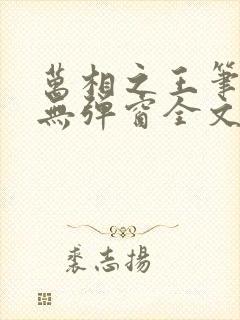 萬相之王筆
無彈窗全文
裘志揚